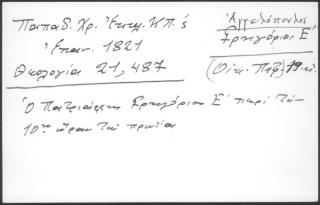 Παπαδ. Χρ. Ἐκκλ. Κ/Π. &
Ἐπαν. 1821
Θεολογία 21, 487
Ἀγγελόπουλος
Γρηγόριος Ε΄
(Οἰκ. Πατρ.)
Ὁ Πατριάρχης Γρηγόριος Ε΄ περί τήν
10ην ὥραν τῆς πρωίας